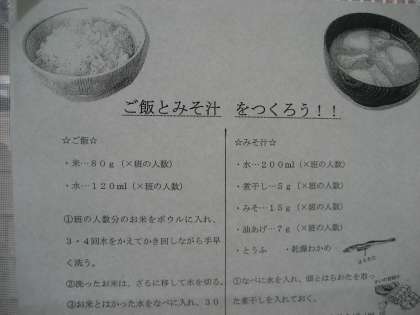 ご飯とみそ汁　をつくろう！！
☆ご飯☆
・米…８０ｇ（×班の人数）
・水…１２０ml（×班の人数）
①班の人数分のお米をボウルに入れ、
３・４回水をかえてかき回しながら手早
く洗う。
②洗ったお米は、ざるに移して水を切る。
③お米とはかった水をなべに入れ、３０
☆みそ汁☆
・水…２００ml（×班の人数）
・煮干し…５ｇ（×班の人数）
・みそ…１５ｇ（×班の人数）
・油あげ…７ｇ（×班の人数）
・とうふ　・乾燥わかめ
①なべに水を入れ、頭とはらわたを取っ
た煮干しを入れておく。